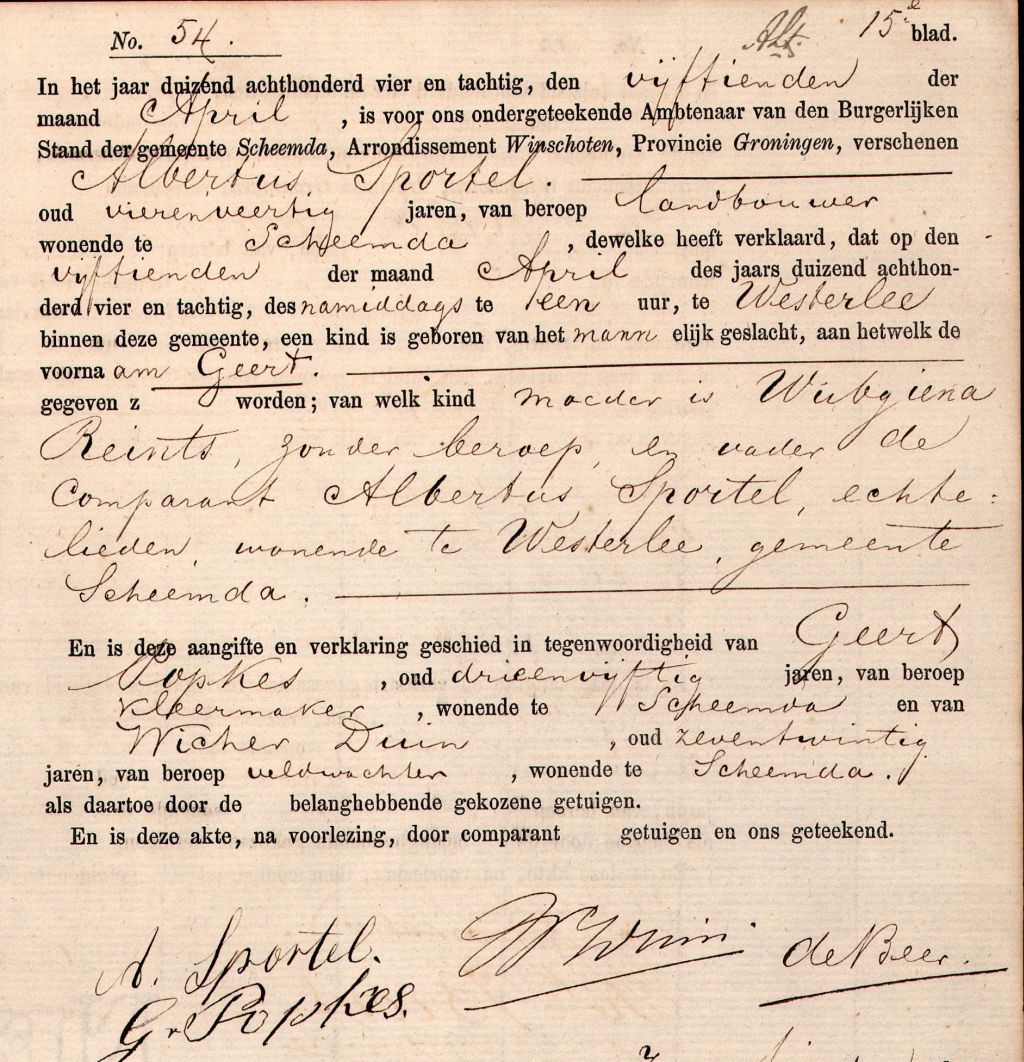 No. 54.
15e blad.
In het jaar duizend achthonderd vier en tachtig, den vijftienden der
maand April , is voor ons ondergeteekende Ambtenaar van den Burgerlijken
Stand der gemeente Scheemda, Arrondissement Winschoten, Provincie Groningen, verschenen
Albertus Sportel.
oud vierenveertig jaren, van beroep landbouwer
wonende te Scheemda , dewelke heeft verklaard, dat op den
vijftienden der maand April des jaars duizend achthon-
derd vier en tachtig, des namiddags te een uur, te Westerlee
binnen deze gemeente, een kind is geboren van het mann elijk geslacht, aan hetwelk de
voorna am Geert.
gegeven z worden; van welk kind moeder is Wubgiena
Reints, zonder beroep, en vader de
Comparant Albertus Sportel, echte=
lieden, wonende te Westerlee, gemeente
Scheemda.
En is deze aangifte en verklaring geschied in tegenwoordigheid van Geert
Popkes , oud drieenvijftig jaren, van beroep
kleermaker , wonende te Scheemda en van
Wicher Duin , oud zeventwintig
jaren, van beroep veldwachter , wonende te Scheemda.
als daartoe door de belanghebbende gekozene getuigen.
En is deze akte, na voorlezing, door comparant getuigen en ons geteekend.
A. Sportel. W Duin. de Beer.
G. Popkes.